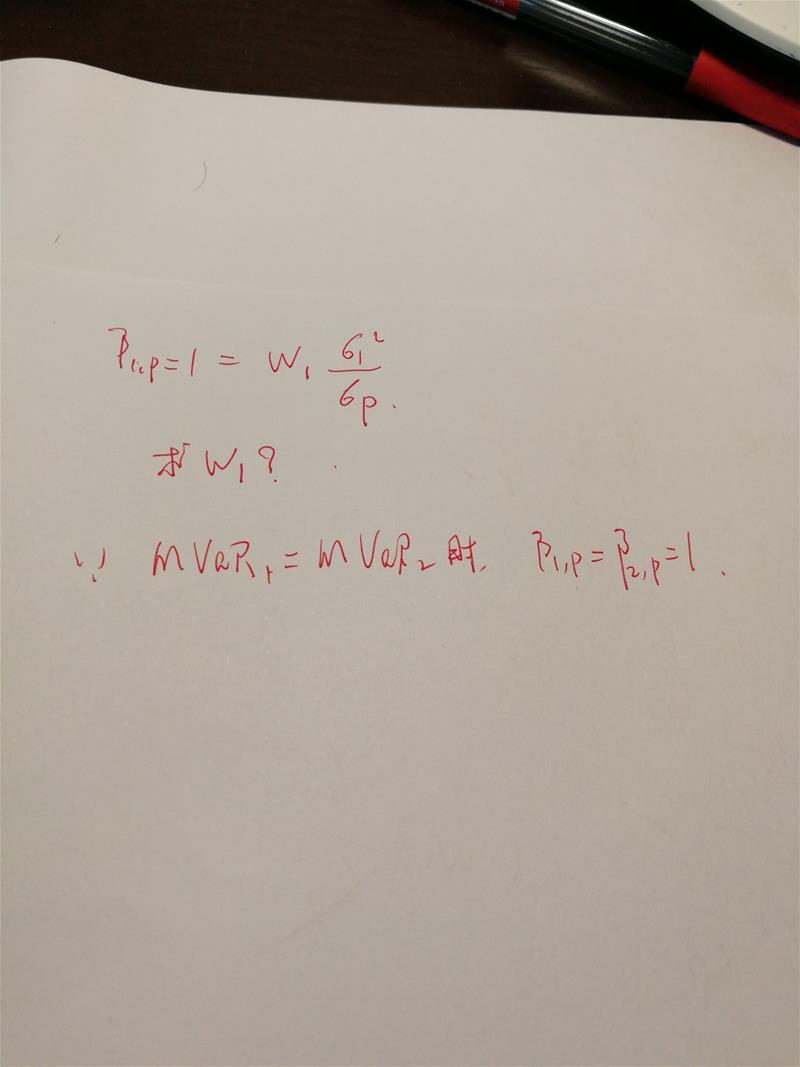 β₁,p = 1 = W₁ σ₁²/σp.
求 W₁?
∵ MVaR₁ = MVaR₂ 时, β₁,p = β₂,p = 1.